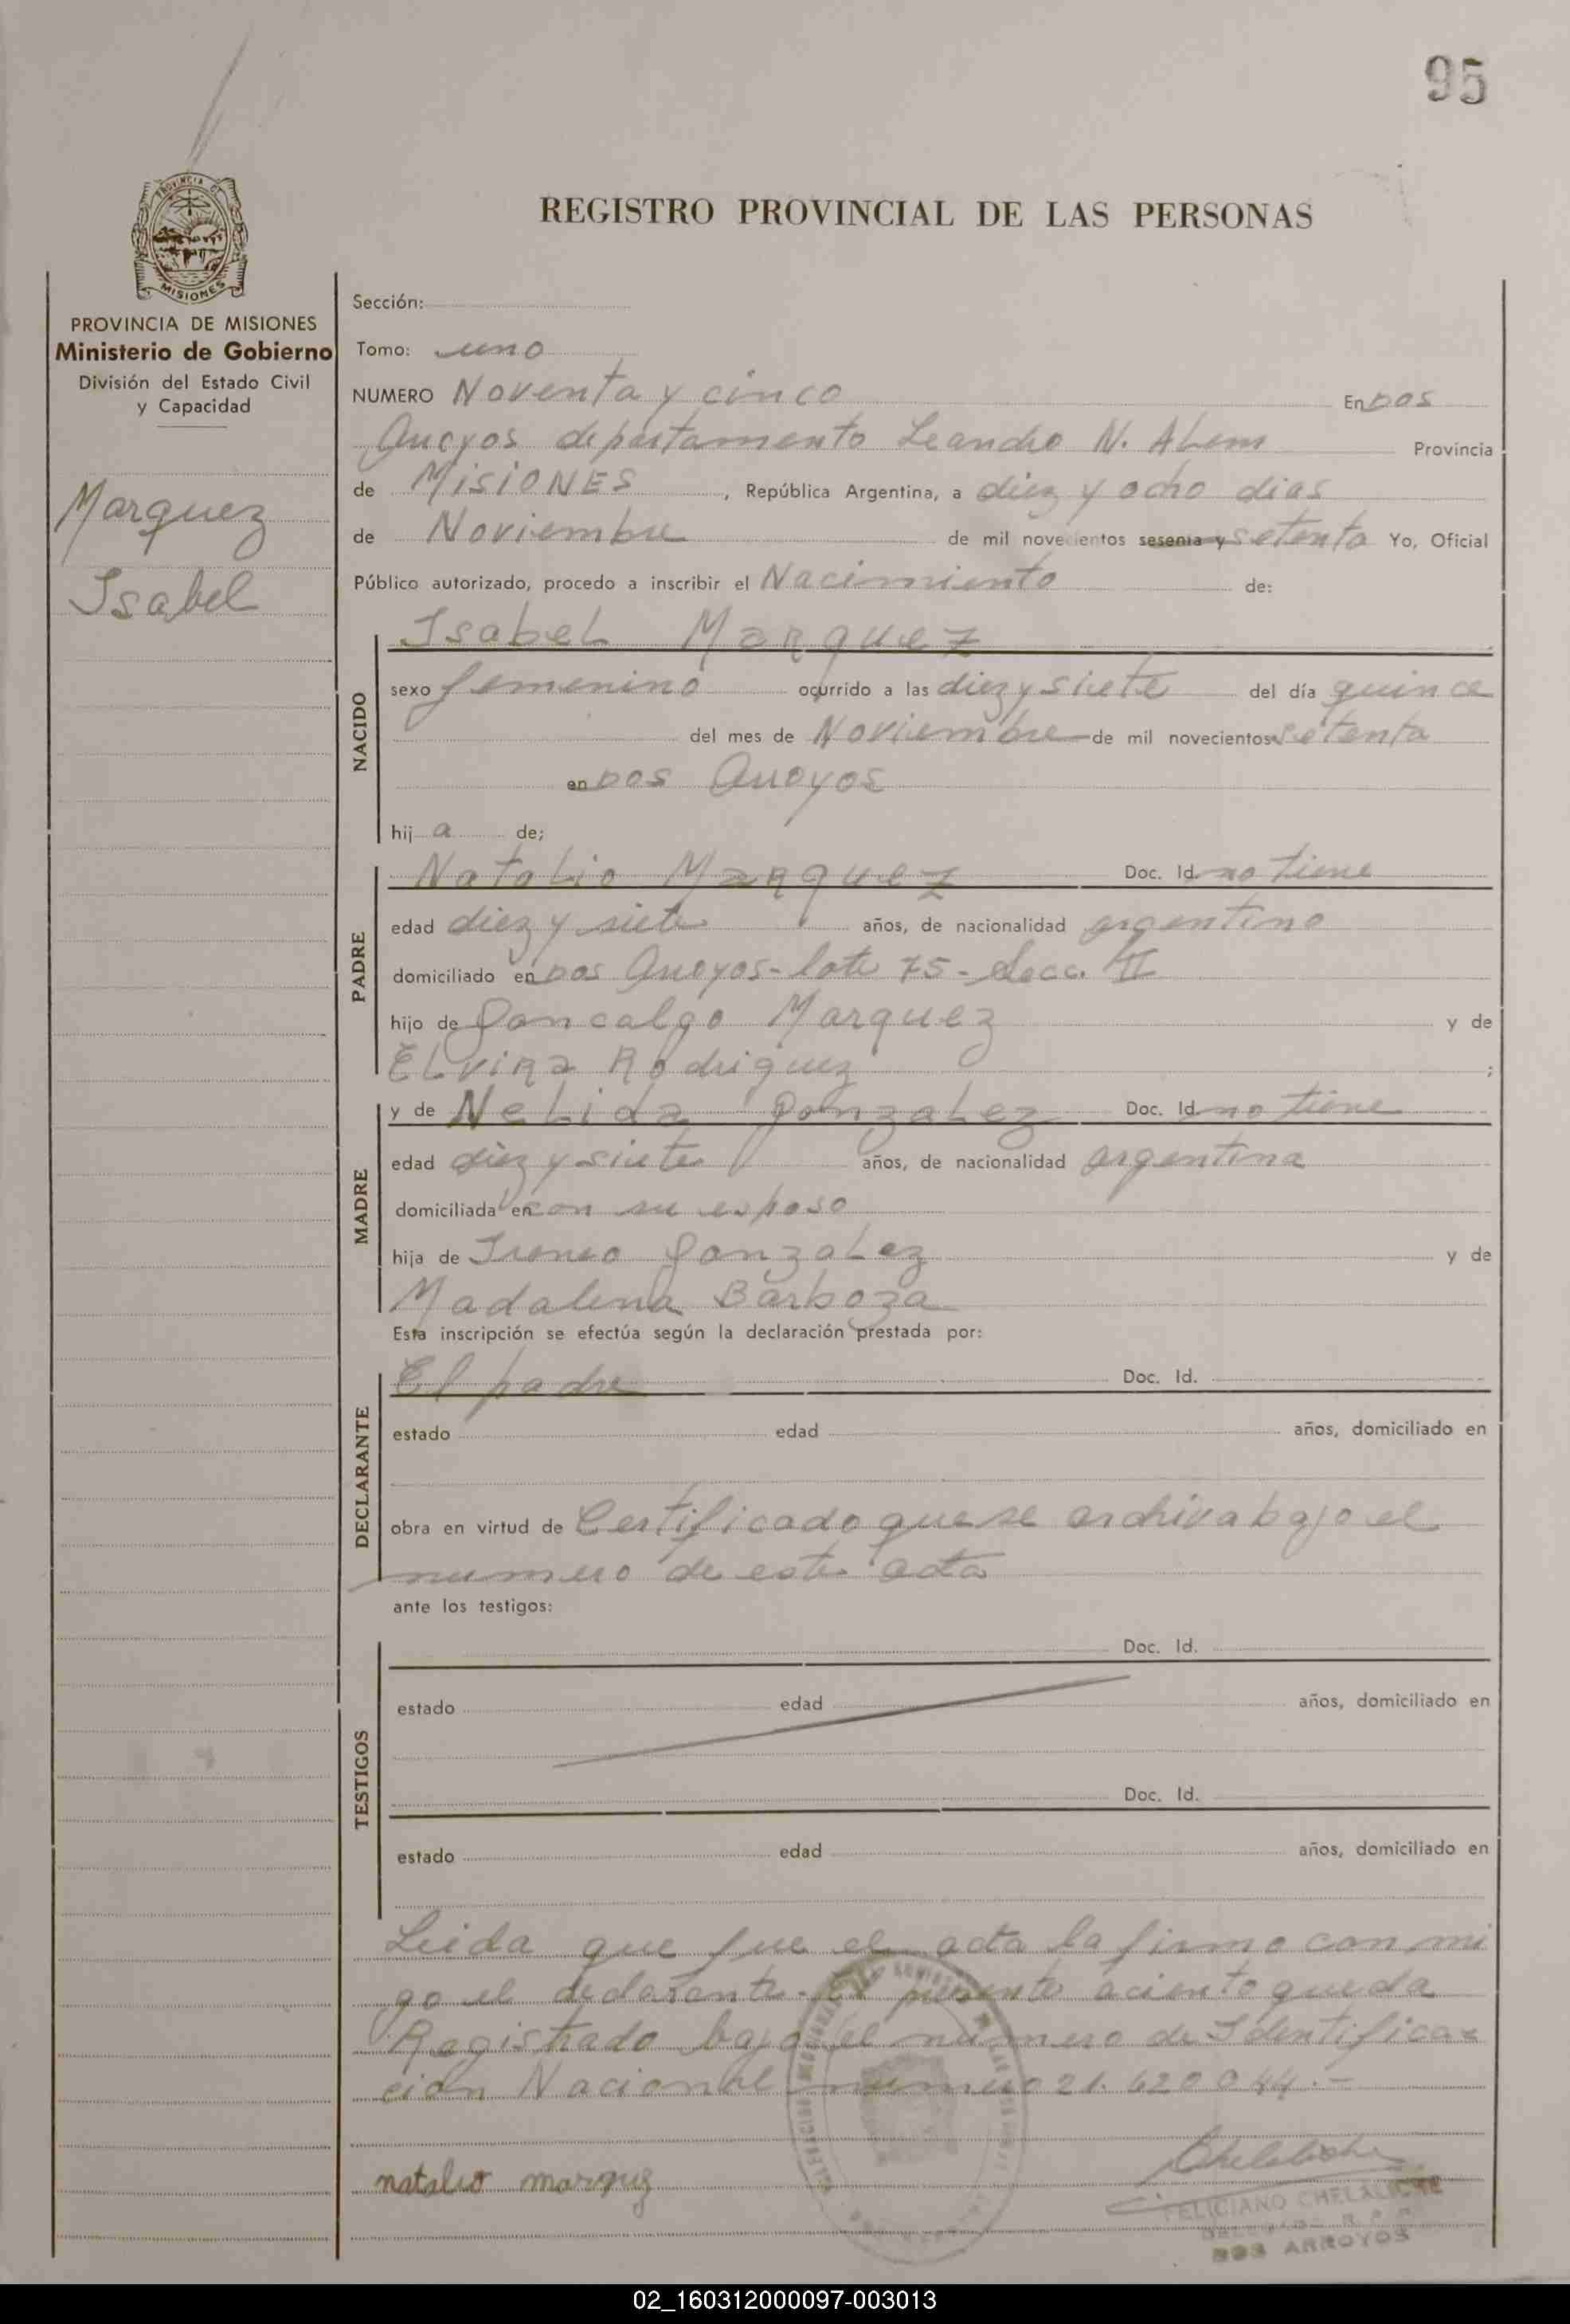 95
REGISTRO PROVINCIAL DE LAS PERSONAS
PROVINCIA DE MISIONES
Ministerio de Gobierno
División del Estado Civil
y Capacidad
Marquez
Isabel
Sección:
Tomo: uno
NUMERO Noventa y cinco En Dos
Arroyos departamento Leandro N. Alem Provincia
de MISIONES, República Argentina, a diez y ocho dias
de Noviembre de mil novecientos sesenta y setenta Yo, Oficial
Público autorizado, procedo a inscribir el Nacimiento de:
NACIDO
Isabel Marquez
sexo femenino ocurrido a las diez y siete del día quince
del mes de Noviembre de mil novecientos setenta
en Dos Arroyos
hij a de;
PADRE
Natalio Marquez Doc. Id. no tiene
edad diez y siete años, de nacionalidad argentino
domiciliado en Dos Arroyos - lote 75 - Secc. II
hijo de Goncalgo Marquez y de
Elvira Rodriguez ;
MADRE
y de Nelida Gonzalez Doc. Id. no tiene
edad diez y siete años, de nacionalidad argentina
domiciliada en con su esposo
hija de Ireneo Gonzalez y de
Madalena Barboza
Esta inscripción se efectúa según la declaración prestada por:
DECLARANTE
El padre Doc. Id.
estado edad años, domiciliado en
obra en virtud de Certificado que se archiva bajo el
numero de este acta
ante los testigos:
TESTIGOS
Doc. Id.
estado edad años, domiciliado en
Doc. Id.
estado edad años, domiciliado en
Leida que fue el acta la firma con mi
go el declarante. El presente aciento queda
Ragistrado bajo el numero de Identifica=
cion Nacional numero 21.620044.-
natalio marquez
FELICIANO CHELALICHE
DOS ARROYOS
02_160312000097-003013